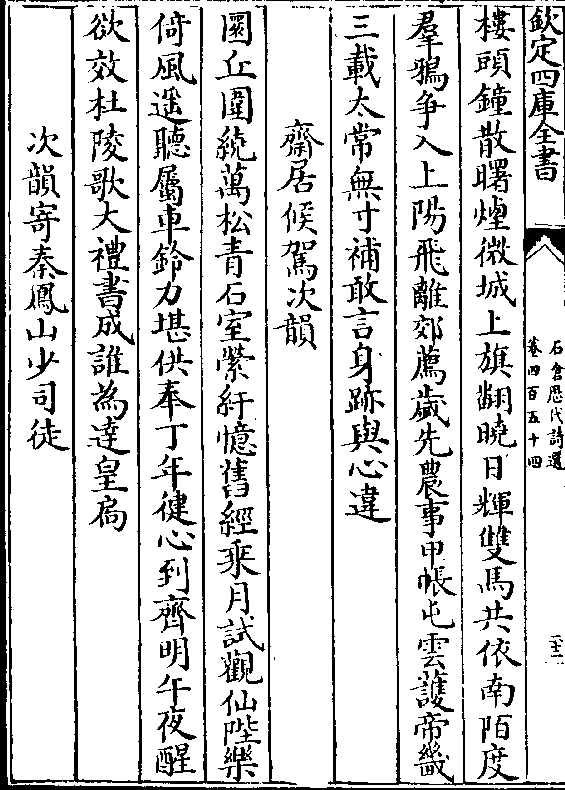 欽定四庫全書
石倉歷代詩選
卷四百五十四
樓頭鐘散曙煙微城上旗翻曉日輝雙馬共依南陌度
羣鴉爭入上陽飛離郊薦歲先農事甲帳屯雲護帝畿
三載太常無寸補敢言身跡與心違
齋居候駕次韻
圜丘圍繞萬松青石室縈紆憶舊經乘月試觀仙陛樂
倚風遥聽屬車鈴力堪供奉丁年健心到齊明午夜醒
欲效杜陵歌大禮書成誰為達皇扃
次韻寄秦鳳山少司徒